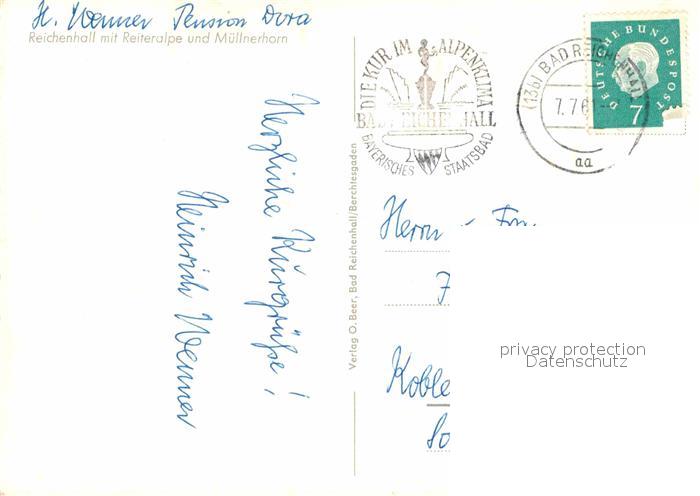 H. Wenner Pension Dora
Reichenhall mit Reiteralpe und Müllnerhorn
Herzliche Kurgrüße!
Heinrich Wenner
Verlag O. Beer, Bad Reichenhall/Berchtesgaden
DIE KUR IM ALPENKLIMA
BAD REICHENHALL
BAYERISCHES STAATSBAD
(13b) BAD REICHENHALL
7.7.6
aa
DEUTSCHE BUNDESPOST
7
Herrn - Frn.
F
Koble
So
privacy protection
Datenschutz